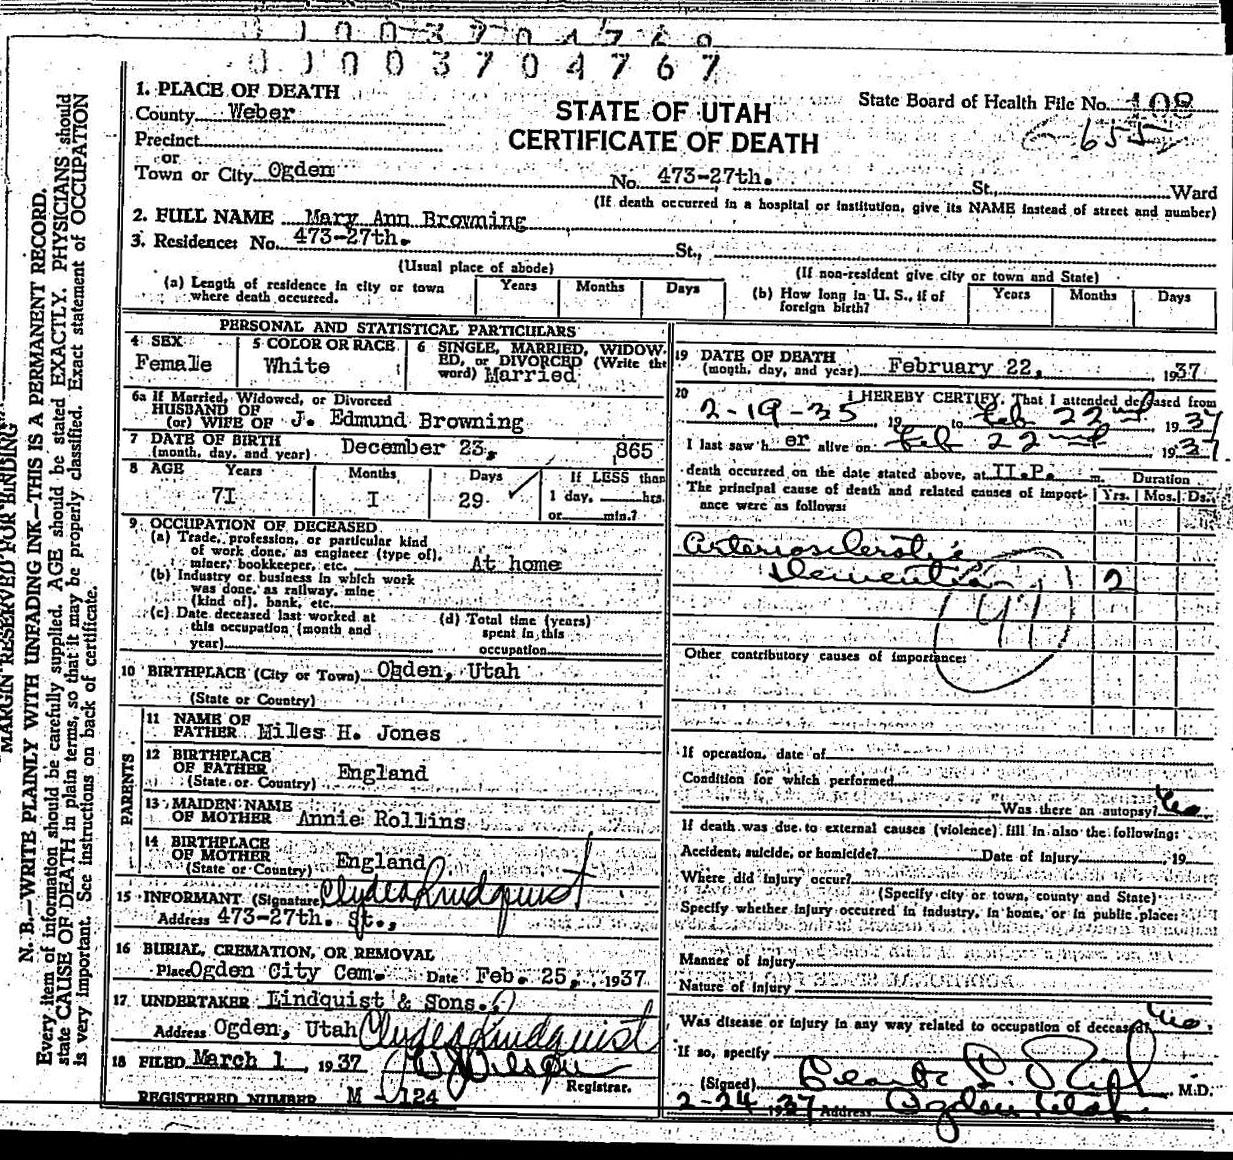 01003704769
01003704767
MARGIN RESERVED FOR BINDING
N. B.—WRITE PLAINLY WITH UNFADING INK—THIS IS A PERMANENT RECORD.
Every item of information should be carefully supplied. AGE should be stated EXACTLY. PHYSICIANS should
state CAUSE OF DEATH in plain terms, so that it may be properly classified. Exact statement of OCCUPATION
is very important. See instructions on back of certificate.
1. PLACE OF DEATH
County Weber
Precinct
or
Town or City Ogden
STATE OF UTAH
CERTIFICATE OF DEATH
State Board of Health File No. 108
655
No. 473-27th. St., Ward
(If death occurred in a hospital or institution, give its NAME instead of street and number)
2. FULL NAME Mary Ann Browning
3. Residence: No. 473-27th. St.,
(Usual place of abode) (If non-resident give city or town and State)
(a) Length of residence in city or town where death occurred. Years Months Days
(b) How long in U. S., if of foreign birth? Years Months Days
PERSONAL AND STATISTICAL PARTICULARS
4 SEX
Female
5 COLOR OR RACE
White
6 SINGLE, MARRIED, WIDOW-
ED, or DIVORCED (Write the
word) Married
6a If Married, Widowed, or Divorced
HUSBAND OF
(or) WIFE OF J. Edmund Browning
7 DATE OF BIRTH
(month, day, and year) December 23, 865
8 AGE Years Months Days If LESS than
7I I 29 ✓ 1 day, hrs.
or min.?
9 OCCUPATION OF DECEASED
(a) Trade, profession, or particular kind
of work done, as engineer (type of),
miner, bookkeeper, etc. At home
(b) Industry or business in which work
was done, as railway, mine
(kind of), bank, etc.
(c) Date deceased last worked at
this occupation (month and
year)
(d) Total time (years)
spent in this
occupation
10 BIRTHPLACE (City or Town) Ogden, Utah
(State or Country)
PARENTS
11 NAME OF
FATHER Miles H. Jones
12 BIRTHPLACE
OF FATHER England
(State or Country)
13 MAIDEN NAME
OF MOTHER Annie Rollins
14 BIRTHPLACE
OF MOTHER England
(State or Country)
15 INFORMANT (Signature) Clyde Lindquist
Address 473-27th. St.,
16 BURIAL, CREMATION, OR REMOVAL
Place Ogden City Cem. Date Feb. 25, 1937
17 UNDERTAKER Lindquist & Sons.
Address Ogden, Utah Clyde Lindquist
18 FILED March 1, 1937
Registrar.
REGISTERED NUMBER M - 124
19 DATE OF DEATH
(month, day, and year) February 22, 1937
20 I HEREBY CERTIFY, That I attended deceased from
2-19-35, 19 to Feb 22nd 1937
I last saw her alive on Feb 22nd 1937.
death occurred on the date stated above, at II.P. m.
The principal cause of death and related causes of import-
ance were as follows:
Duration
Yrs. Mos. Ds.
Arteriosclerotic
Dementia 2
97
Other contributory causes of importance:
If operation, date of
Condition for which performed
Was there an autopsy? No.
If death was due to external causes (violence) fill in also the following:
Accident, suicide, or homicide? Date of injury , 19
Where did injury occur?
(Specify city or town, county and State)
Specify whether injury occurred in industry, in home, or in public place:
Manner of injury
Nature of injury
Was disease or injury in any way related to occupation of deceased? No.
If so, specify
(Signed) M.D.
2-24 1937 Address Ogden Utah